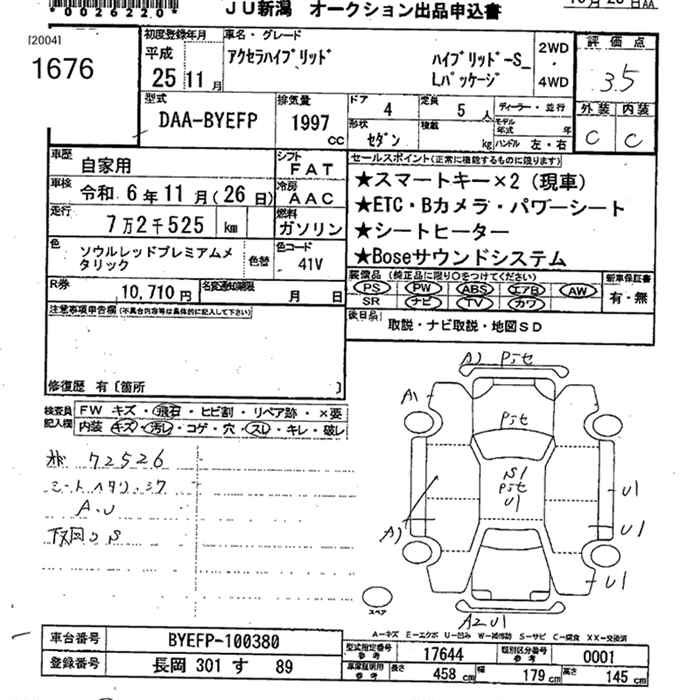 *0026220* JU新潟 オークション出品申込書
[2004]
1676
初度登録年月 車名・グレード 評価点
平成 25 11月
アクセラハイブリッド ハイブリッド-S Lパッケージ
2WD・4WD
3.5
型式 DAA-BYEFP
排気量 1997 cc
ドア 4 定員 5人 ディーラー・並行
形状 セダン 積載 kg モデル年式 年 ハンドル 左・右
外装 内装
C C
車歴 自家用
シフト FAT
車検 令和 6年11月(26日)
冷房 AAC
走行 7万2千525 km
燃料 ガソリン
色 ソウルレッドプレミアムメタリック
色替
色コード 41V
R券 10,710円
名変通知期限 月 日
セールスポイント(正常に機能するものに限ります)
★スマートキー×2(現車)
★ETC・Bカメラ・パワーシート
★シートヒーター
★Boseサウンドシステム
装備品(純正品に限り○をつけてください)
PS PW ABS エアB AW
SR ナビ TV カワ
新車保証書
有・無
後日品 取説・ナビ取説・地図SD
注意事項申告欄(不具合内容等は具体的に記入して下さい)
修復歴 有〔箇所 〕
検査員記入欄
FW キズ・飛石・ヒビ割・リペア跡・×要
内装 キズ・汚レ・コゲ・穴・スレ・キレ・破レ
72526
シートヘタリ・シワ
A.U
A1 Pitな
A1
Pitな
S1
Pitな
U1
A1
U1
U1
U1
スペア
A2 U1
A-キズ E-エクボ U-凹み W-補修跡 S-サビ C-腐食 XX-交換済
車台番号 BYEFP-100380
登録番号 長岡 301 す 89
型式指定番号 参考 17644
類別区分番号 参考 0001
車庫証明用 参考 長さ 458 cm 幅 179 cm 高さ 145 cm